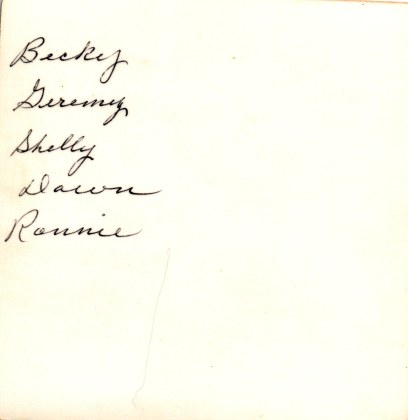 Becky
Geremy
Shelly
Dawn
Ronnie